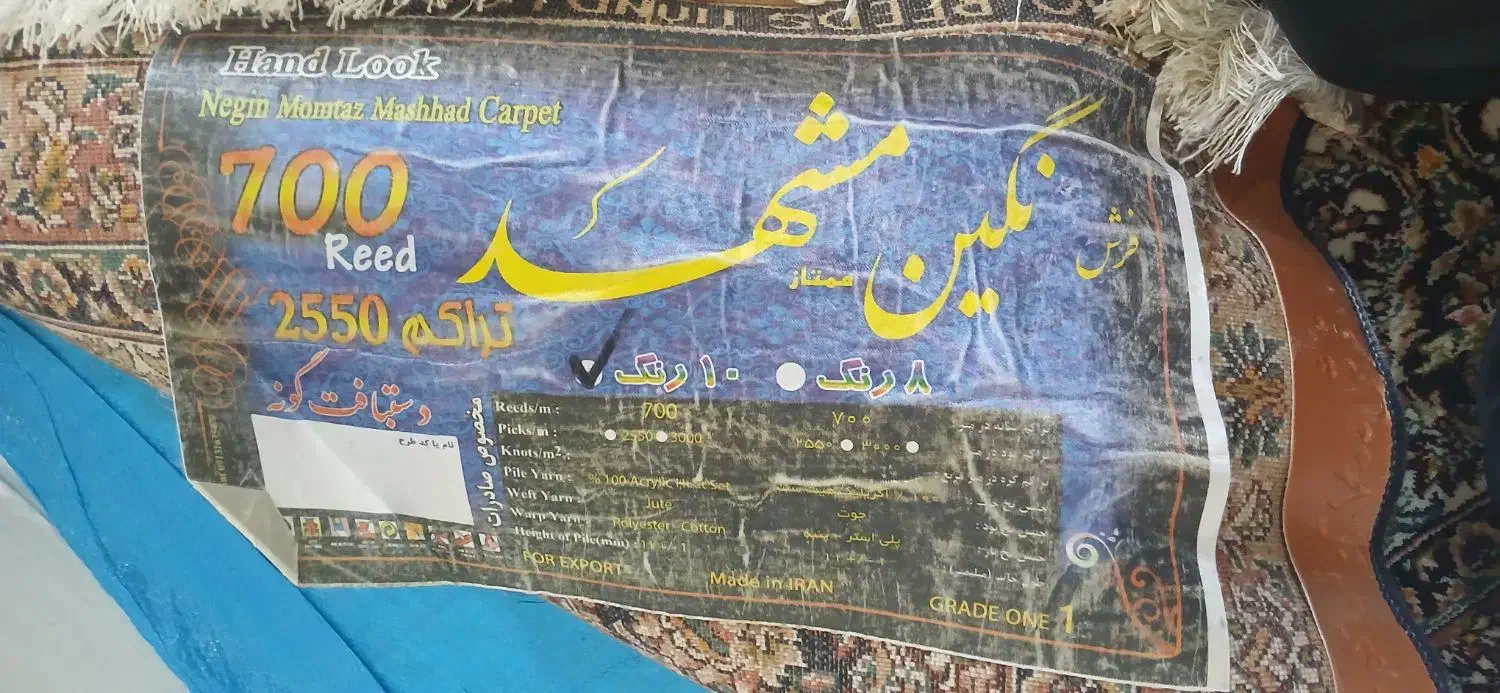 Hand Look
Negin Momtaz Mashhad Carpet
700
Reed
تراکم 2550
دستبافت گونه
فرش
نگین مشهد
ممتاز
۸ رنگ
۱۰ رنگ
نام یا کد طرح
مخصوص صادرات
Reeds/m : 700 ۷۰۰
Picks/m : 2550 3000 ۳۰۰۰ ۲۵۵۰
Knots/m² :
Pile Yarn : %100 Acrylic Heat Set
Weft Yarn : Jute جوت
Warp Yarn : Polyester - Cotton پلی استر - پنبه
Height of Pile(mm) : 11 +/- 1
FOR EXPORT
Made in IRAN
GRADE ONE 1